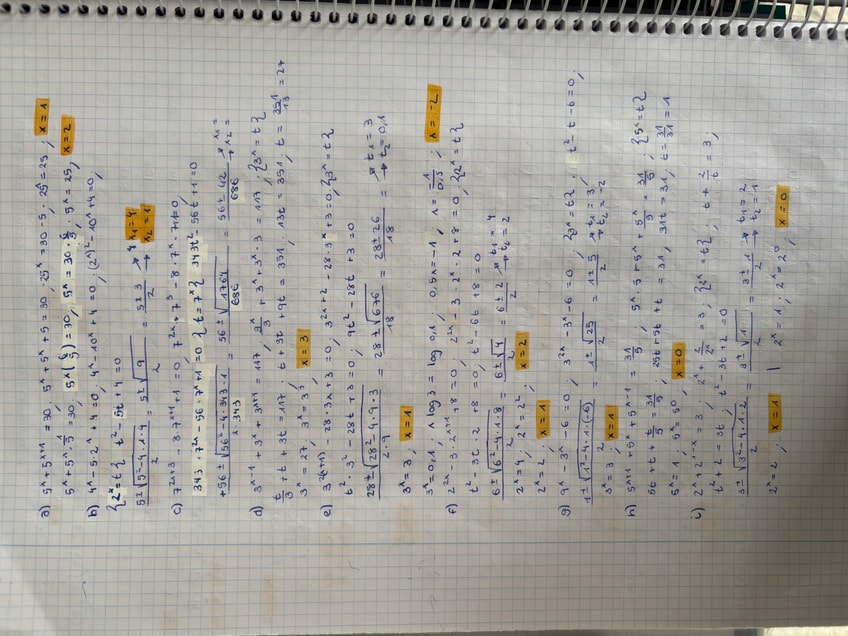 a) 5ˣ + 5ˣ⁺¹ = 30; 5ˣ + 5ˣ + 5 = 30; 25ˣ = 30 - 5; 25ˣ = 25; x = 1
5ˣ + 5ˣ · 5/5 = 30; 5ˣ (6/5) = 30; 5ˣ = 30 · 5/6; 5ˣ = 25; x = 2
b) 4ˣ - 5 · 2ˣ + 4 = 0; 4ˣ - 10ˣ + 4 = 0; (2ˣ)² - 10ˣ + 4 = 0;
{2ˣ = t{ t² - 5t + 4 = 0
5 ± √(5² - 4 · 1 · 4) / 2 = 5 ± √9 / 2 = 5 ± 3 / 2 → x₁ = 4 → x₂ = 1
c) 7²ˣ⁺³ - 8 · 7ˣ⁺¹ + 1 = 0; 7²ˣ + 7³ - 8 · 7ˣ · 7 + 1 = 0;
343 · 7²ˣ - 56 · 7ˣ + 1 = 0 { t = 7ˣ} 343t² - 56t + 1 = 0
+56 ± √(56² - 4 · 343 · 1) / 2 · 343 = 56 ± √1764 / 686 = 56 ± 42 / 686 → x₁ = → x₂ =
d) 3ˣ⁻¹ + 3ˣ + 3ˣ⁺¹ = 117; 3ˣ/3 + 3ˣ + 3ˣ · 3 = 117; {3ˣ = t{
t/3 + t + 3t = 117; t + 3t + 9t = 351; 13t = 351; t = 351/13 = 27
3ˣ = 27; 3ˣ = 3³; x = 3
e) 28 · 3ˣ + 3 = 0; 3²ˣ + 2 - 28 · 3ˣ + 3 = 0; {3ˣ = t}
t² · 3² - 28t + 3 = 0; 9t² - 28t + 3 = 0
28 ± √(28² - 4 · 9 · 3) / 2 · 9 = 28 ± √676 / 18 = 28 ± 26 / 18 → t₁ = 3 → t₂ = 0,1
3ˣ = 3; x = 1
3ˣ = 0,1; x log 3 = log 0,1; 0,5x = -1; x = -1/0,5; x = -2
f) 2²ˣ - 3 · 2ˣ⁺¹ + 8 = 0; 2²ˣ - 3 · 2ˣ · 2 + 8 = 0; {2ˣ = t{
t² - 3t · 2 + 8 = 0; t² - 6t + 8 = 0
6 ± √(6² - 4 · 1 · 8) / 2 = 6 ± √4 / 2 = 6 ± 2 / 2 → t₁ = 4 → t₂ = 2
2ˣ = 4; 2ˣ = 2²; x = 2
2ˣ = 2; x = 1
g) 9ˣ - 3ˣ - 6 = 0; 3²ˣ - 3ˣ - 6 = 0; {3ˣ = t}; t² - t - 6 = 0;
1 ± √(1² - 4 · 1 · (-6)) / 2 = 1 ± √25 / 2 = 1 ± 5 / 2 → t₁ = 3; → t₂ = -2
3ˣ = 3; x = 1
h) 5ˣ⁺¹ + 5ˣ + 5ˣ⁻¹ = 31/5; 5ˣ · 5 + 5ˣ + 5ˣ/5 = 31/5; {5ˣ = t{
5t + t + t/5 = 31/5; 25t + 5t + t = 31; 31t = 31; t = 31/31 = 1
5ˣ = 1; 5ˣ = 5⁰; x = 0
i) 2ˣ + 2¹⁻ˣ = 3; 2ˣ + 2/2ˣ = 3; {2ˣ = t{; t + 2/t = 3;
t² + 2 = 3t; t² - 3t + 2 = 0
3 ± √(3² - 4 · 1 · 2) / 2 = 3 ± √1 / 2 = 3 ± 1 / 2 → t₁ = 2; → t₂ = 1
2ˣ = 2; x = 1 | 2ˣ = 1; 2ˣ = 2⁰ x = 0